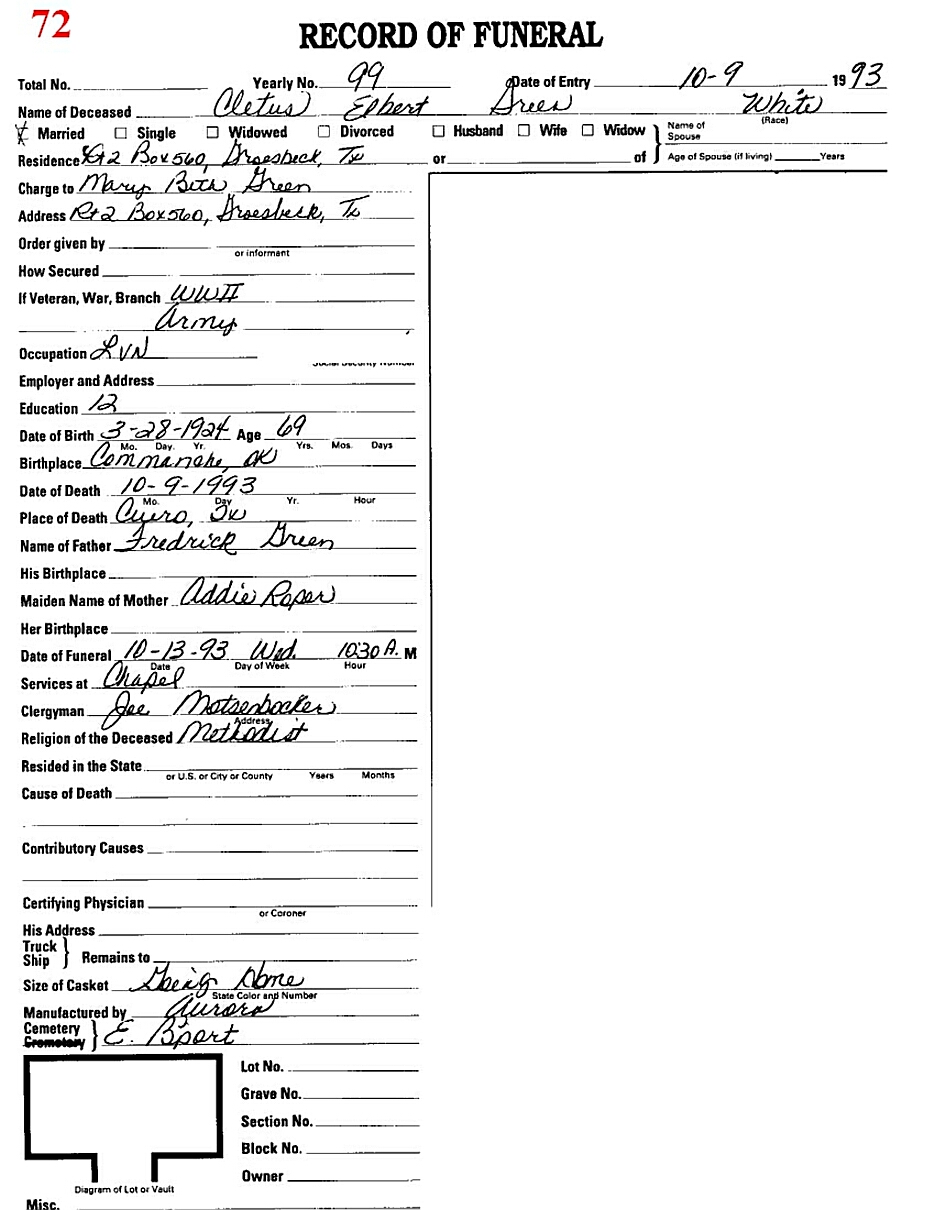 72
RECORD OF FUNERAL
Total No. Yearly No. 99 Date of Entry 10-9 1993
Name of Deceased Cletus Elbert Green White
(Race)
Married Single Widowed Divorced Husband Wife Widow Name of Spouse
Residence Rt 2 Box 560, Groesbeck, Tx or of Age of Spouse (if living) Years
Charge to Mary Beth Green
Address Rt 2 Box 560, Groesbeck, Tx
Order given by
or informant
How Secured
If Veteran, War, Branch WWII
Army
Occupation LVN
Social Security Number
Employer and Address
Education 12
Date of Birth 3-28-1924 Age 69
Mo. Day. Yr. Yrs. Mos. Days
Birthplace Commanche, OK
Date of Death 10-9-1993
Mo. Day Yr. Hour
Place of Death Cuero, Tx
Name of Father Fredrick Green
His Birthplace
Maiden Name of Mother Addie Roper
Her Birthplace
Date of Funeral 10-13-93 Wed. 10:30 A. M
Date Day of Week Hour
Services at Chapel
Clergyman Joe Motsenbocker
Address
Religion of the Deceased Methodist
Resided in the State
or U.S. or City or County Years Months
Cause of Death
Contributory Causes
Certifying Physician
or Coroner
His Address
Truck
Ship Remains to
Size of Casket Going Home
State Color and Number
Manufactured by Aurora
Cemetery
Crematory E. B'port
Lot No.
Grave No.
Section No.
Block No.
Owner
Diagram of Lot or Vault
Misc.